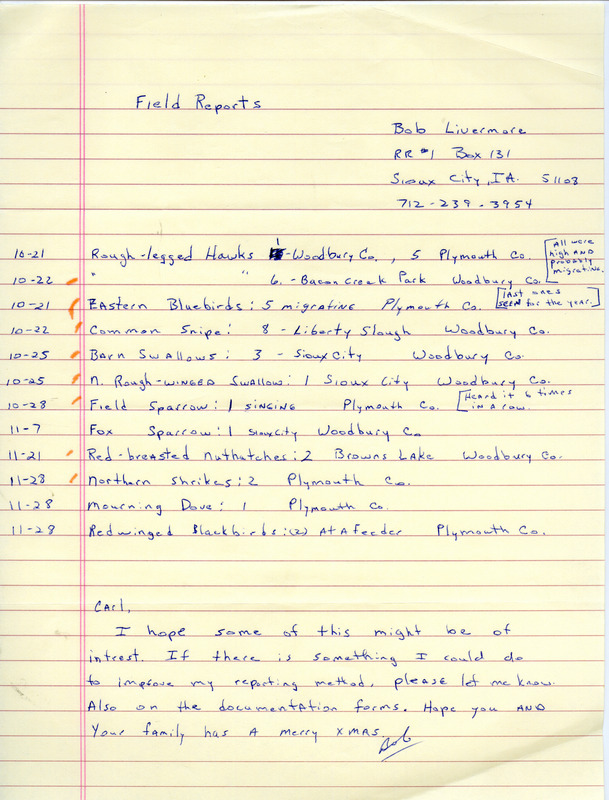 Field Reports
Bob Livermore
RR #1 Box 131
Sioux City, IA. 51108
712-239-3954
10-21 Rough-legged Hawks 1-Woodbury Co., 5 Plymouth Co. [All were high AND probably migrating.]
10-22 " " 6. - Bacon Creek Park Woodbury Co.
10-21 Eastern Bluebirds: 5 migrating Plymouth Co. [last ones seen for the year.]
10-22 Common Snipe: 8 - Liberty Slough Woodbury Co.
10-25 Barn Swallows: 3 - Sioux City Woodbury Co.
10-25 N. Rough-winged Swallow: 1 Sioux City Woodbury Co.
10-28 Field Sparrow: 1 singing Plymouth Co. [Heard it 6 times in a row.
11-7 Fox Sparrow: 1 Sioux City Woodbury Co
11-21 Red-breasted Nuthatches: 2 Browns Lake Woodbury Co.
11-28 Northern Shrikes: 2 Plymouth Co.
11-28 Mourning Dove: 1 Plymouth Co.
11-28 Redwinged Blackbirds: (2) At A feeder Plymouth Co.
Carl,
I hope some of this might be of
intrest. If there is something I could do
to improve my reporting method, please let me know.
Also on the documentation forms. Hope you AND
Your family has A merry xmas.
Bob